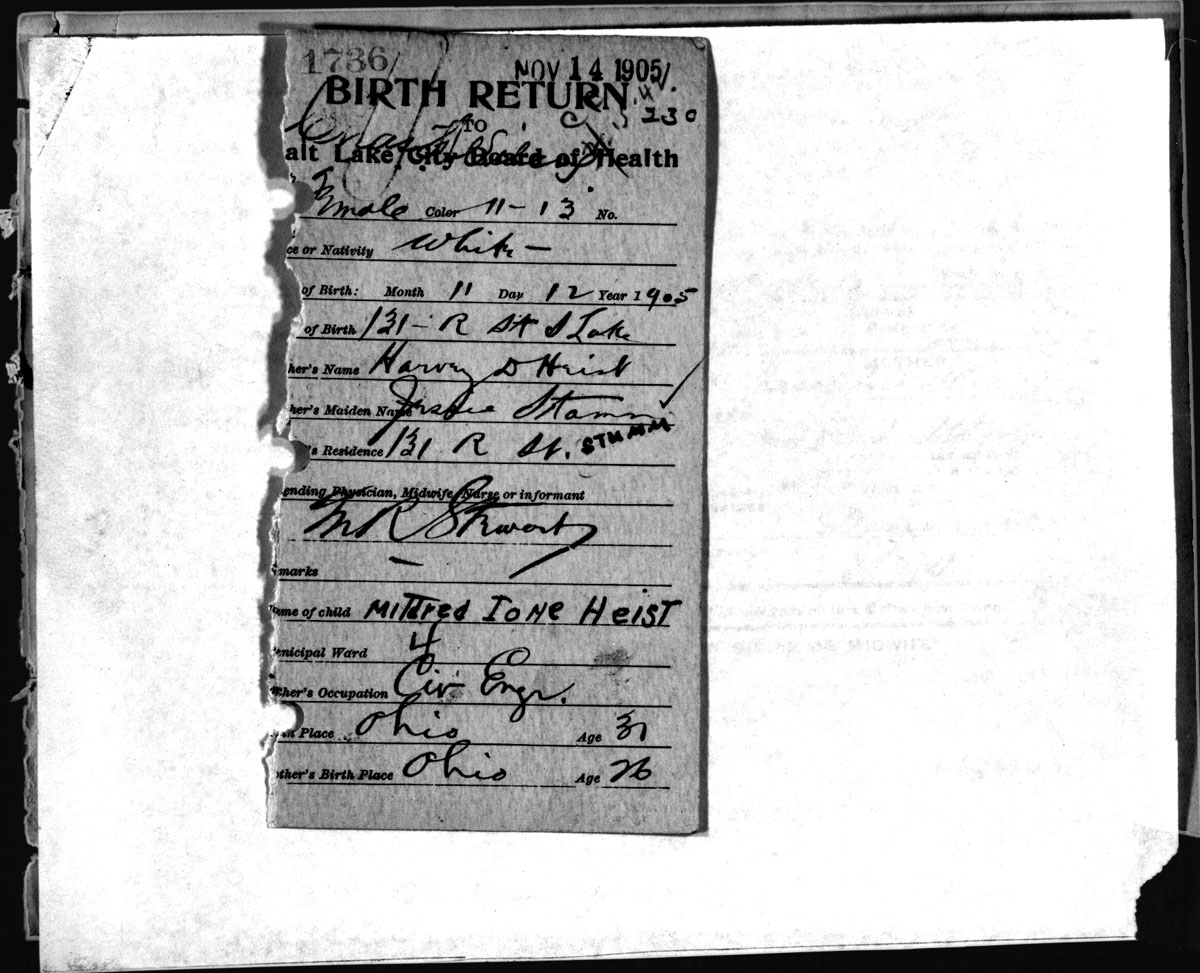 1736
NOV 14 1905
BIRTH RETURN
TO
230
alt Lake City Board of Health
Female Color 11-13 No.
ce or Nativity White -
of Birth: Month 11 Day 12 Year 1905
of Birth 131 - R St S Lake
her's Name Harvey D Heist
her's Maiden Name Jessie Stamm
STUMM
's Residence 131 R St.
ending Physician, Midwife, Nurse or informant
M R Stewart
marks —
ame of child MILDRED IONE HEIST
unicipal Ward 4
ther's Occupation Civ Engr.
Place Ohio Age 31
other's Birth Place Ohio Age 26